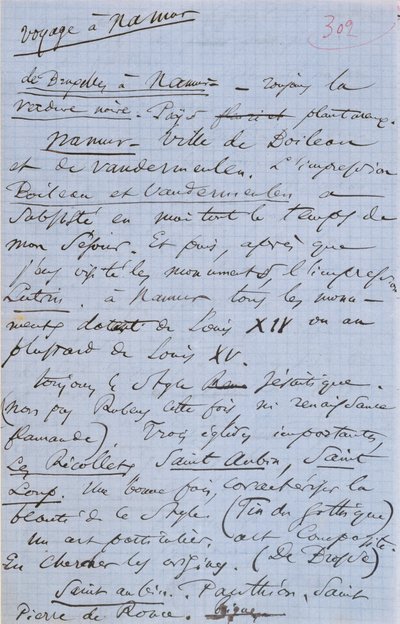 Voyage à Namur
302
de Bruxelles à Namur - toujours la
verdure noire. Pays fleuri et plantureux.
Namur - Ville de Boileau
et de Vandermeulen. L'impression
Boileau et Vandermeulen a
subsisté en moi tout le temps de
mon séjour. Et puis, après que
j'eus visité les monuments, l'impression
Lutrin. à Namur tous les monu-
ments datent de Louis XIV ou au
plus tard de Louis XV.
toujours le style jésuitique.
(non pas Rubens cette fois, ni renaissance
flamande). Trois églises importantes,
Les Récollets, Saint Aubin, Saint
Loup. Une bonne fois, caractériser la
beauté de ce style (Fin du Gothique)
Un art particulier, art composite.
En chercher les origines. (De Brosse)
Saint aubin. Panthéon, Saint
Pierre de Rome.